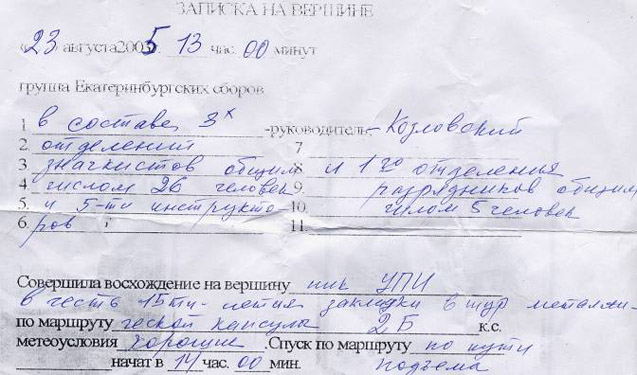 ЗАПИСКА НА ВЕРШИНЕ
«23» августа 2005г. 13 час. 00 минут
группа Екатеринбургских сборов
1 в составе 3х -руководитель- Козловский
2. отделений 7
3 значкистов общим 8 и 1го отделения
4. числом 26 человек 9. разрядников общим
5. и 5-ти инструкто 10. числом 5 человек
6. ров 11.
Совершила восхождение на вершину пик УПИ
в честь 15ти-летия закладки в тур металли-
по маршруту ческой капсулы 2Б к.с.
метеоусловия хорошие. Спуск по маршруту по пути
начат в 14 час. 00 мин. подъема